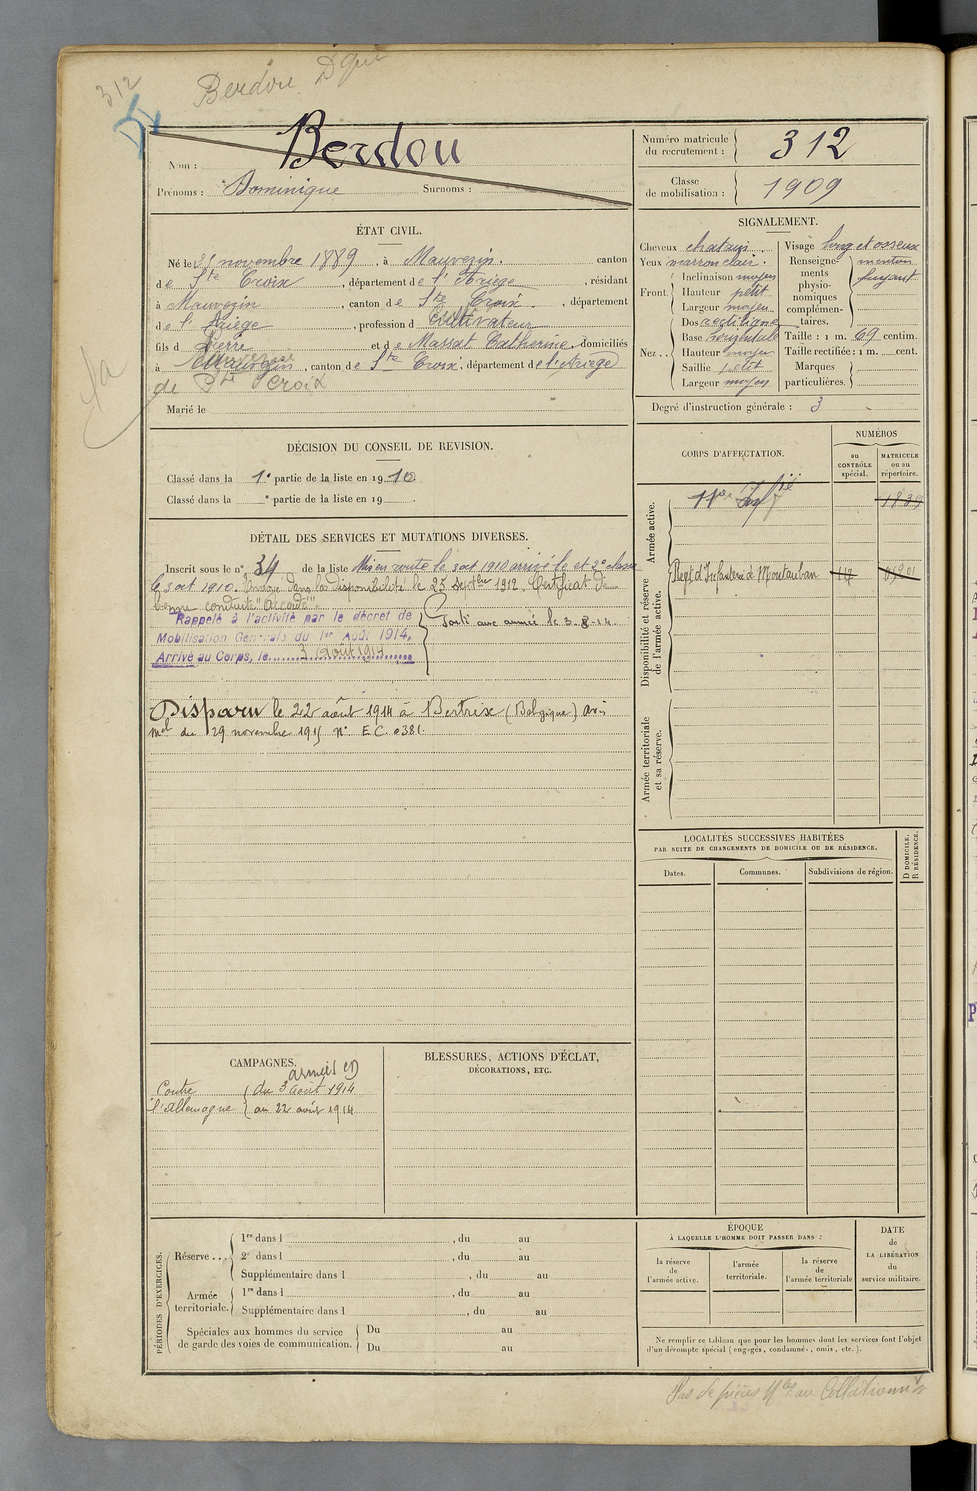 312
Berdou Dque
Nom : Berdou
Prénoms : Dominique Surnoms :
Numéro matricule du recrutement : 312
Classe de mobilisation : 1909
ÉTAT CIVIL.
Né le novembre 1889, à Mauvezin. canton
de Ste Croix, département de l'Ariège, résidant
à Mauvezin, canton de Ste Croix., département
de l'Ariège, profession d cultivateur
fils d Pierre et de Massat Catherine, domiciliés
à Mauvezin, canton de Ste Croix, département de l'Ariège
de Ste Croix
Marié le
SIGNALEMENT.
Cheveux chatain
Yeux marron clair.
Front Inclinaison moyen
Hauteur petit
Largeur moyen
Nez Dos rectiligne
Base horizontale
Hauteur moyen
Saillie petit
Largeur moyen
Visage long et osseux
Renseignements physionomiques complémentaires. menton fuyant
Taille : 1 m. 69 centim.
Taille rectifiée : 1 m. cent.
Marques particulières.
Degré d'instruction générale : 3
DÉCISION DU CONSEIL DE REVISION.
Classé dans la 1e partie de la liste en 1910
Classé dans la e partie de la liste en 19
DÉTAIL DES SERVICES ET MUTATIONS DIVERSES.
Inscrit sous le n° 34 de la liste Mis en route le 3 oct 1910 arrivé le et 2e classe
le 3 oct 1910. Envoyé dans la disponibilité le 25 septbre 1912. Certificat de
bonne conduite "accordé".
Rappelé à l'activité par le décret de
Mobilisation Générale du 1er Août 1914,
Arrivé au Corps, le 3 Août 1914
Parti aux armées le 3-8-14.
Disparu le 22 août 1914 à Bertrix (Belgique) avis
mel du 29 novembre 1915 n° E.C. 0381.
CORPS D'AFFECTATION.
NUMÉROS
au CONTRÔLE spécial.
MATRICULE ou au répertoire.
Armée active.
Disponibilité et réserve de l'armée active.
Regt d'Infanterie de Montauban 117 01901
Armée territoriale et sa réserve.
LOCALITÉS SUCCESSIVES HABITÉES
PAR SUITE DE CHANGEMENTS DE DOMICILE OU DE RÉSIDENCE.
Dates.
Communes.
Subdivisions de région.
D DOMICILE.
R RÉSIDENCE.
CAMPAGNES.
armées (1)
Contre l'Allemagne
du 3 août 1914
au 22 août 1914
BLESSURES, ACTIONS D'ÉCLAT,
DÉCORATIONS, ETC.
PÉRIODES D'EXERCICES.
Réserve ...
1re dans l , du au
2e dans l , du au
Supplémentaire dans l , du au
Armée territoriale.
1re dans l , du au
Supplémentaire dans l , du au
Spéciales aux hommes du service
de garde des voies de communication.
Du au
Du au
ÉPOQUE
À LAQUELLE L'HOMME DOIT PASSER DANS :
la réserve de l'armée active.
l'armée territoriale.
la réserve de l'armée territoriale
DATE de LA LIBÉRATION du service militaire.
Ne remplir ce tableau que pour les hommes dont les services font l'objet
d'un décompte spécial (engagés, condamnés, omis, etc.).
Pas de pièces